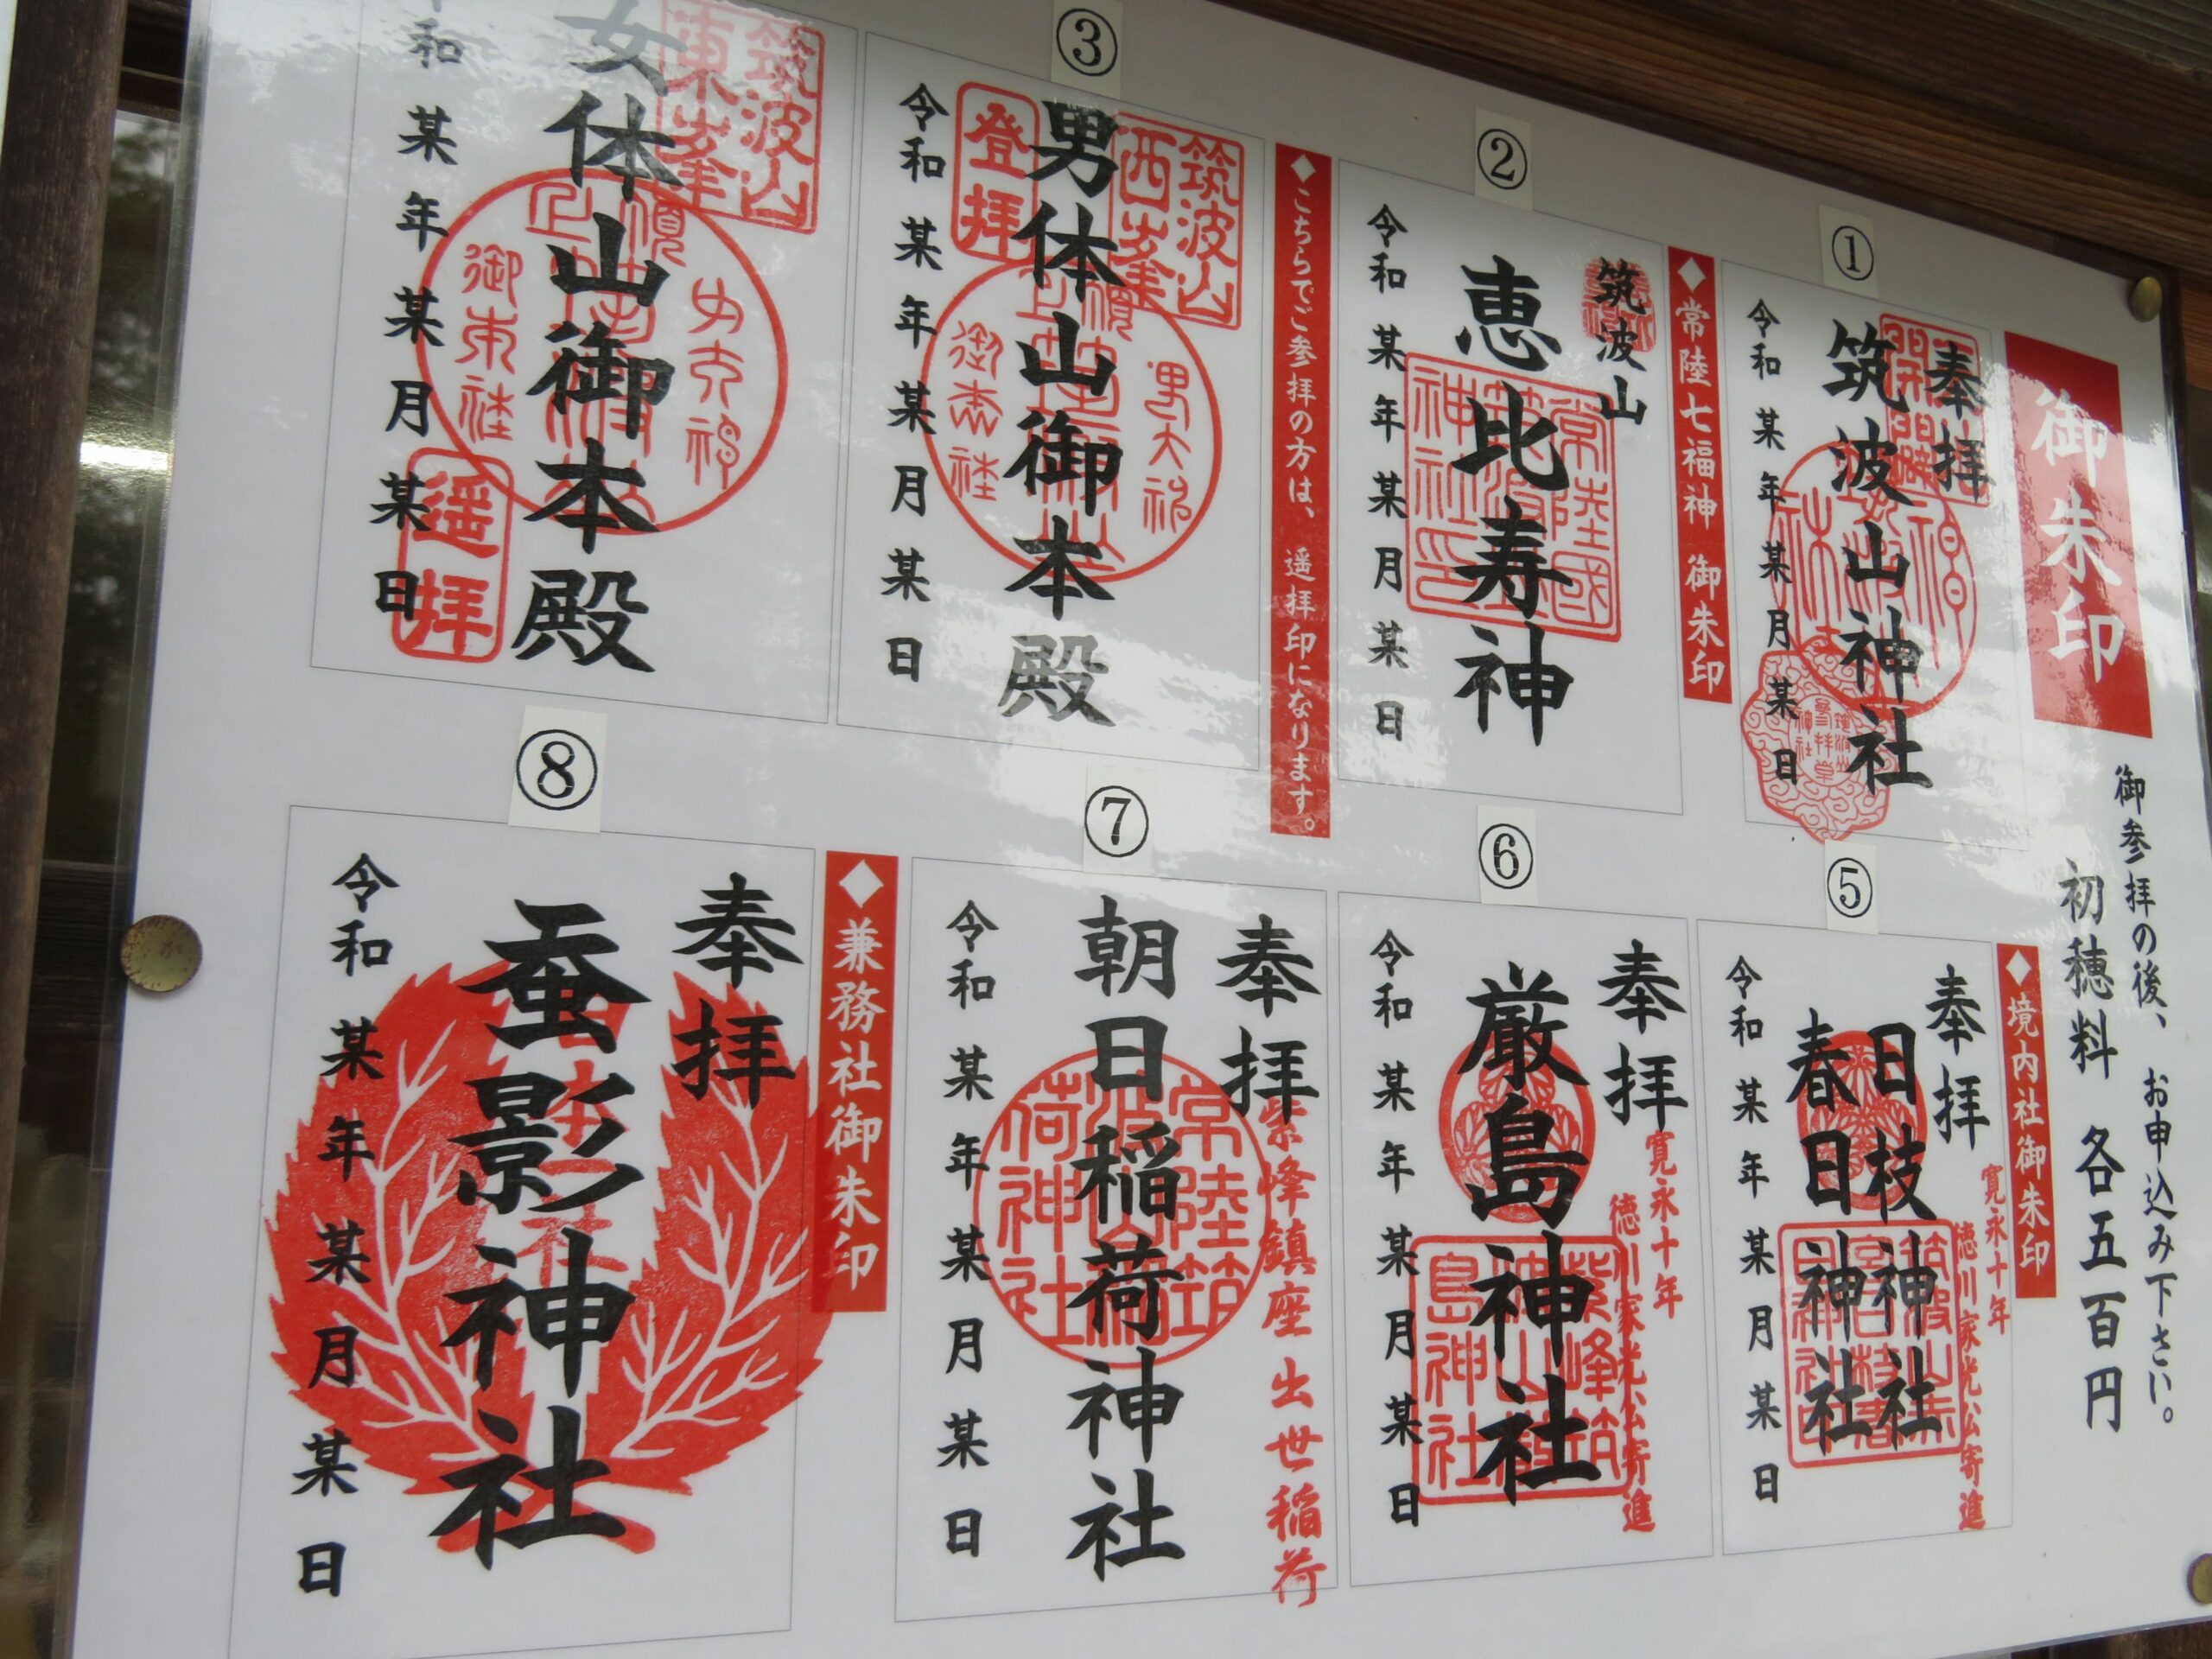 御朱印
御参拝の後、お申込み下さい。
初穂料 各五百円
①
奉拝
筑波山神社
令和某年某月某日
◆常陸七福神 御朱印
②
筑波山
恵比寿神
令和某年某月某日
◆こちらでご参拝の方は、遥拝印になります。
③
筑波山
西峯
男体山御本殿
登拝
令和某年某月某日
筑波山
東峯
女体山御本殿
遥拝
和某年某月某日
◆境内社御朱印
⑤
奉拝
寛永十年
徳川家光公寄進
日枝神社
春日神社
令和某年某月某日
⑥
奉拝
寛永十年
徳川家光公寄進
厳島神社
令和某年某月某日
⑦
奉拝
紫峰鎮座 出世稲荷
朝日稲荷神社
令和某年某月某日
◆兼務社御朱印
⑧
奉拝
蚕影神社
令和某年某月某日